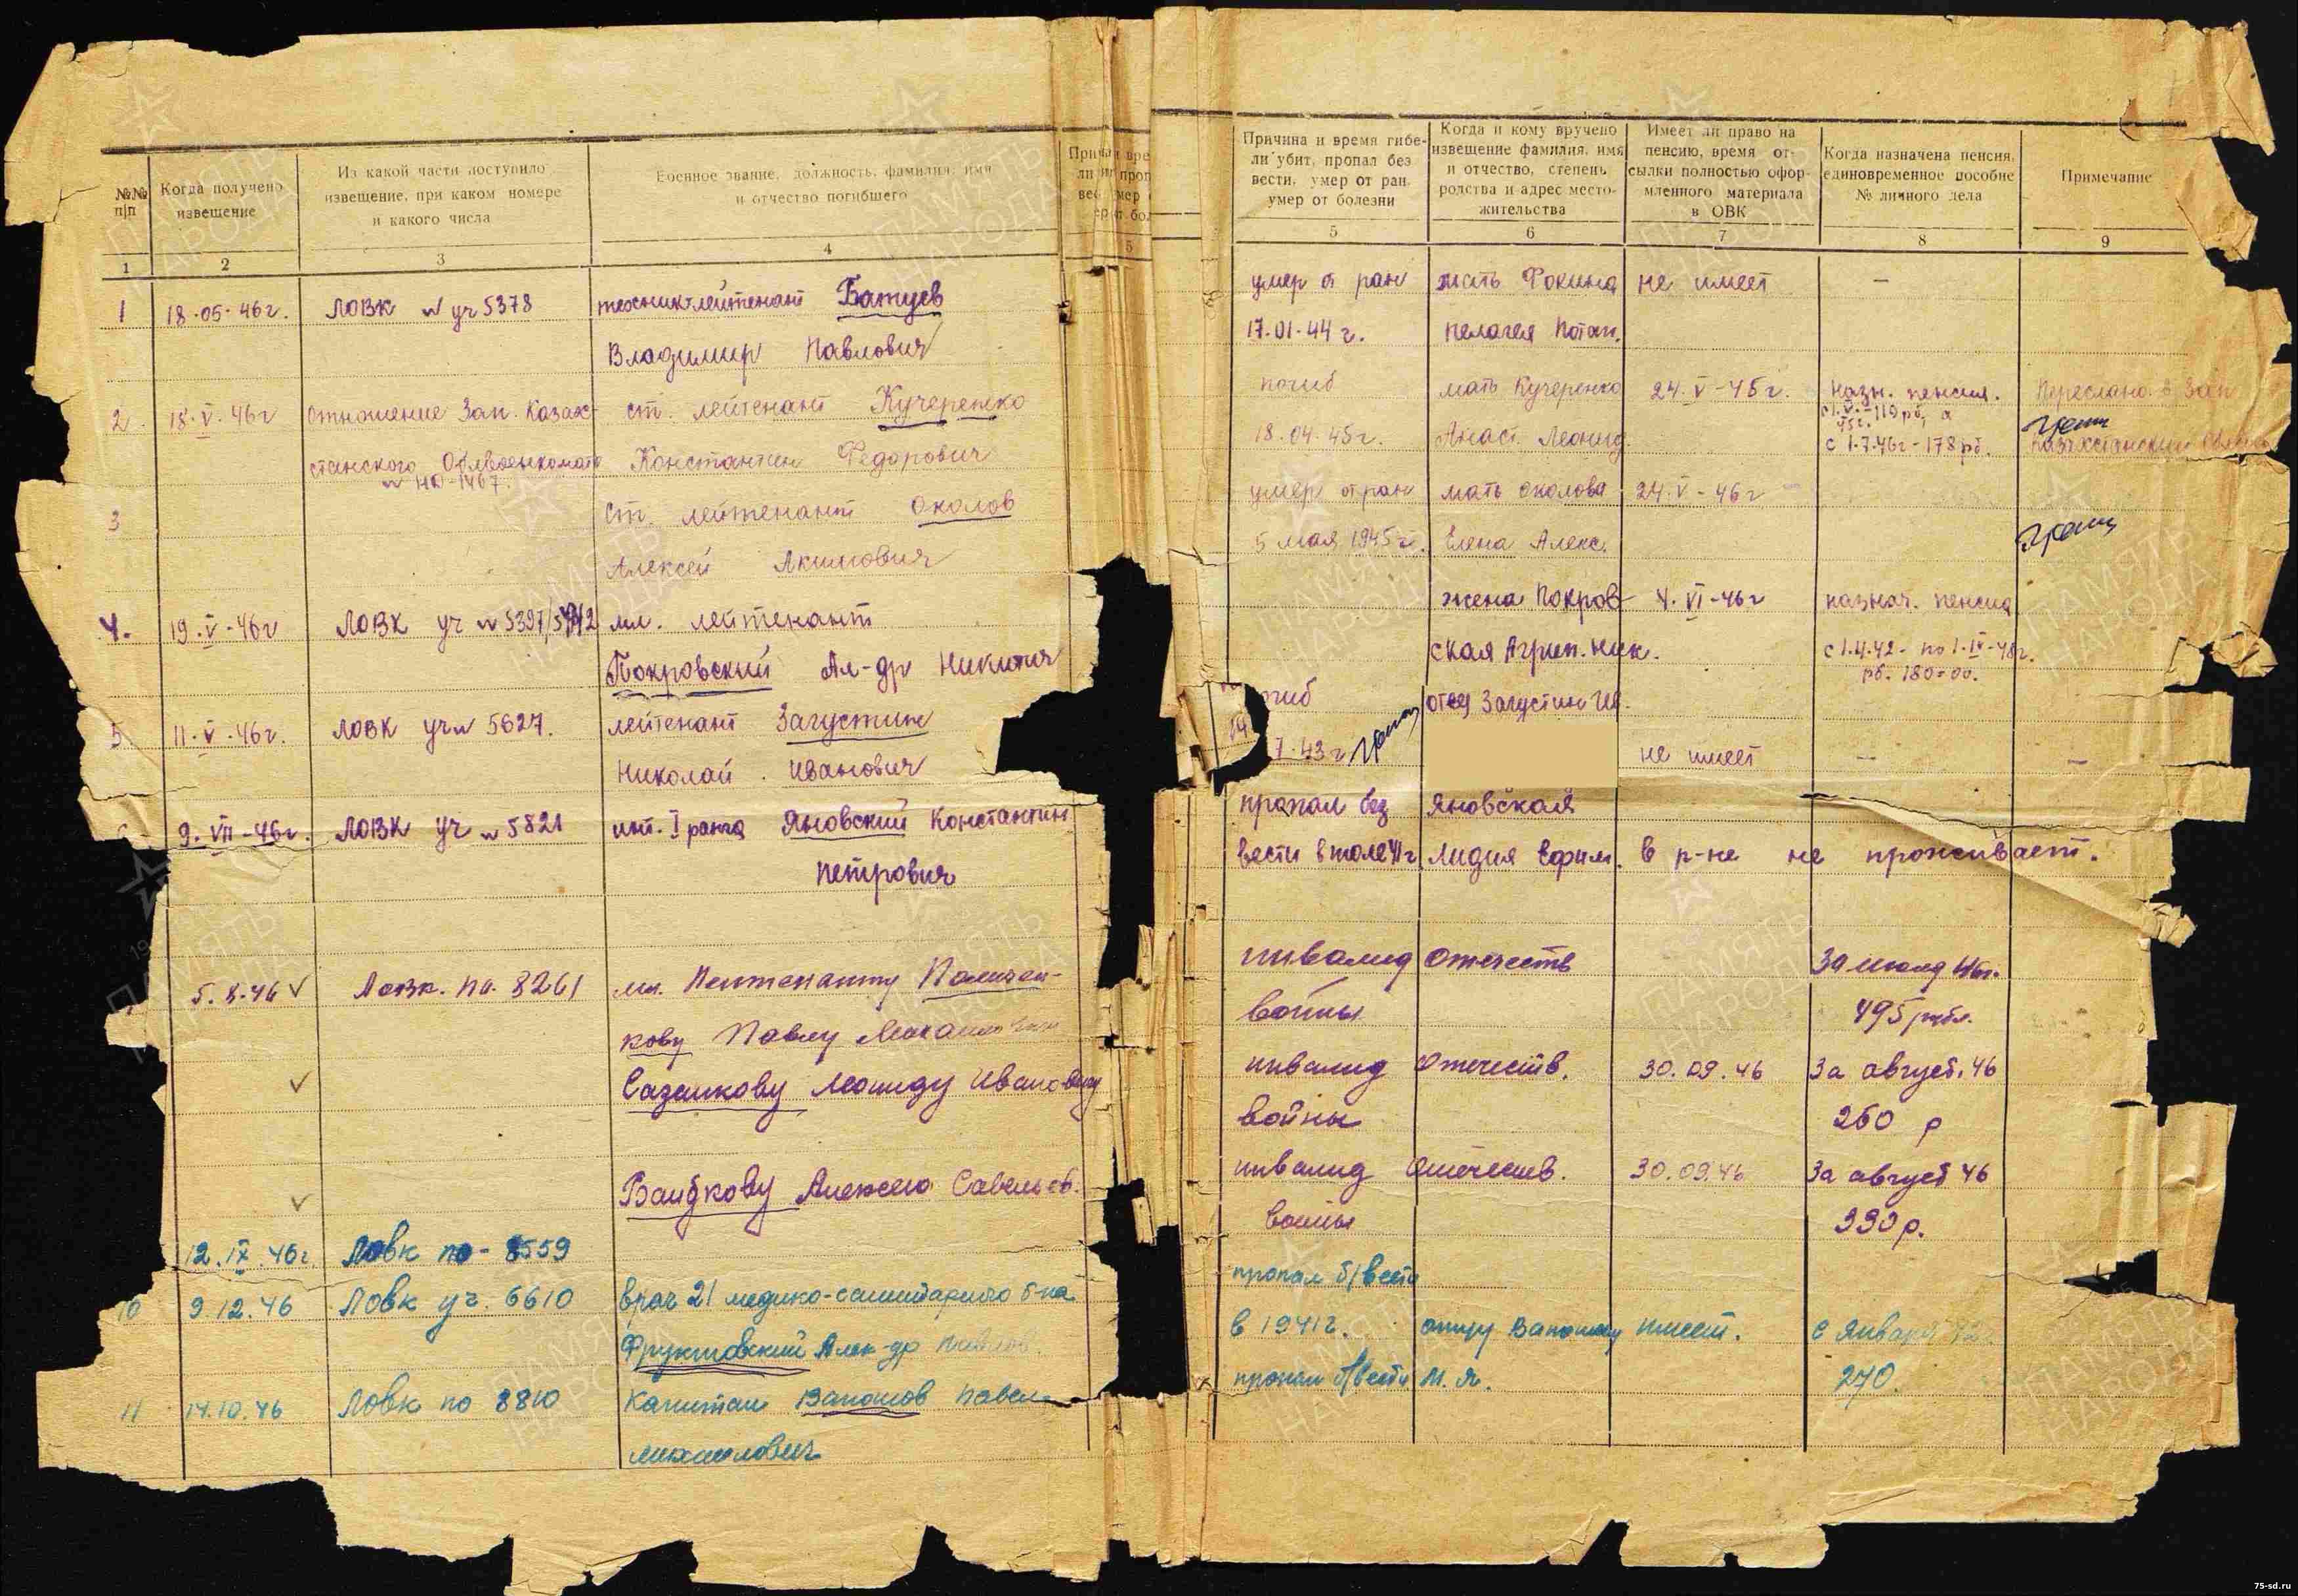 №№ п/п
Когда получено извещение
Из какой части поступило извещение, при каком номере и какого числа
Военное звание, должность, фамилия, имя и отчество погибшего
Причина и время гибели убит, пропал без вести, умер от ран, умер от болезни
Когда и кому вручено извещение фамилия, имя и отчество, степень родства и адрес местожительства
Имеет ли право на пенсию, время отсылки полностью оформленного материала в ОВК
Когда назначена пенсия, единовременное пособие № личного дела
Примечание
1 2 3 4 5 6 7 8 9
1 18.05.46г. ЛОВК № уч 5378 техник-лейтенант Батуев
Владимир Павлович
2 18.V.46г Отношение Зап. Казах-
ст. лейтенант Кучеренко
станского Облвоенкомата
№ НО-1467.
Константин Федорович
3 ст. лейтенант Околов
Алексей Акимович
4. 19.V-46г ЛОВК уч № 5397/ мл. лейтенант
Покровский Ал-др Никитич
5 11.V.46г. ЛОВК уч № 5627. лейтенант Загустин
Николай Иванович
9.VII-46г. ЛОВК уч № 5821 инт. I ранга Яновский Константин
Петрович
5.X.46 ЛОВК. по. 8261 мл. Лейтенанту
кову Павлу
Сазанкову Леониду Ивановичу
Алексею Савельев.
12.IX.46г. ЛОВК по - 8559
10 9.12.46 ЛОВК уч. 6610 врач 21 медико-санитарного б-на
Фруктовский Алек-др Павлов.
11 14.10.46 ЛОВК по 8810 Капитан Ванюшов Павел
Михайлович
умер от ран мать Фокина не имеет —
17.01.44 г. Пелагея Потап.
погиб мать Кучеренко 24.V-45г. назн. пенсия. Переслано в Зап
119 рб, а
18.04.45г. Анаст. Леонид. с 1.7.46г-178 рб. Казахстанский
умер от ран мать Околова 24.V-46г
5 мая 1945 г. Елена Алекс.
жена Покров- 4.VI-46г назнач. пенсия
ская Агрип. Ник. с 1.4.42- по 1-IV-48г.
рб. 180=00.
гиб отец Загустин Ив.
I.43 г не имеет — —
пропал без Яновская
вести в июле 41г Лидия Ефим. в р-не не проживает.
инвалид Отечеств За июль 46г.
войны 495 рубл.
инвалид Отечеств. 30.09.46 За август. 46
войны 260 р
инвалид Отечеств. 30.09.46 За август 46
войны 330 р.
пропал б/вести
в 1941г. отцу Ванюшову имеет. с Января 42
пропал б/вести М. Я. 270.
ПАМЯТЬ НАРОДА
75-sd.ru